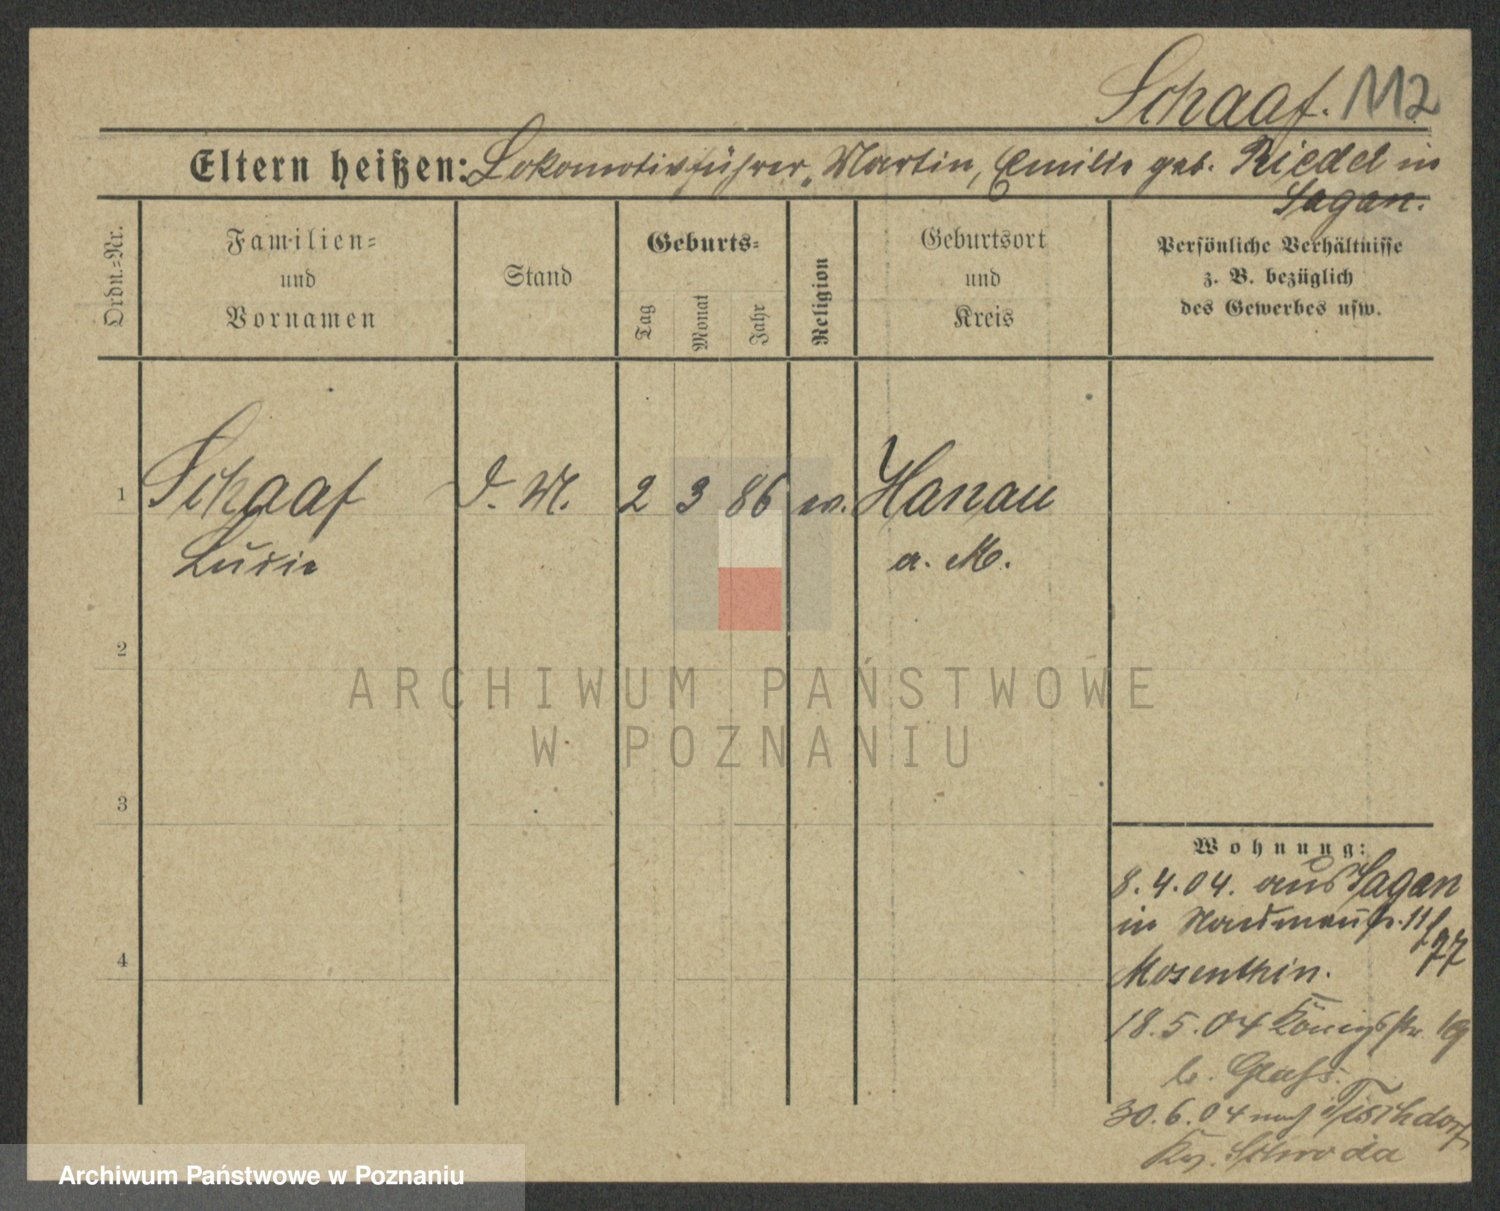 Schaaf. 112
Eltern heißen: Lokomotivführer, Martin, Emilie geb. Riedel in
Sagan.
Ordn.-Nr.
Familien-
und
Vornamen
Stand
Geburts-
Tag
Monat
Jahr
Religion
Geburtsort
und
Kreis
Persönliche Verhältnisse
z. B. bezüglich
des Gewerbes usw.
1 Schaaf D. M. 2 3 86 ev. Hanau
Lucie a. M.
2
3
4
Wohnung:
8.4.04. aus Sagan
in Naumannstr. 11
b/
Mosenthin.
18.5.04 Königstr 19
b. Glass.
30.6.04 nach Tischdorf
Kr. Schroda
ARCHIWUM PAŃSTWOWE
W POZNANIU
Archiwum Państwowe w Poznaniu